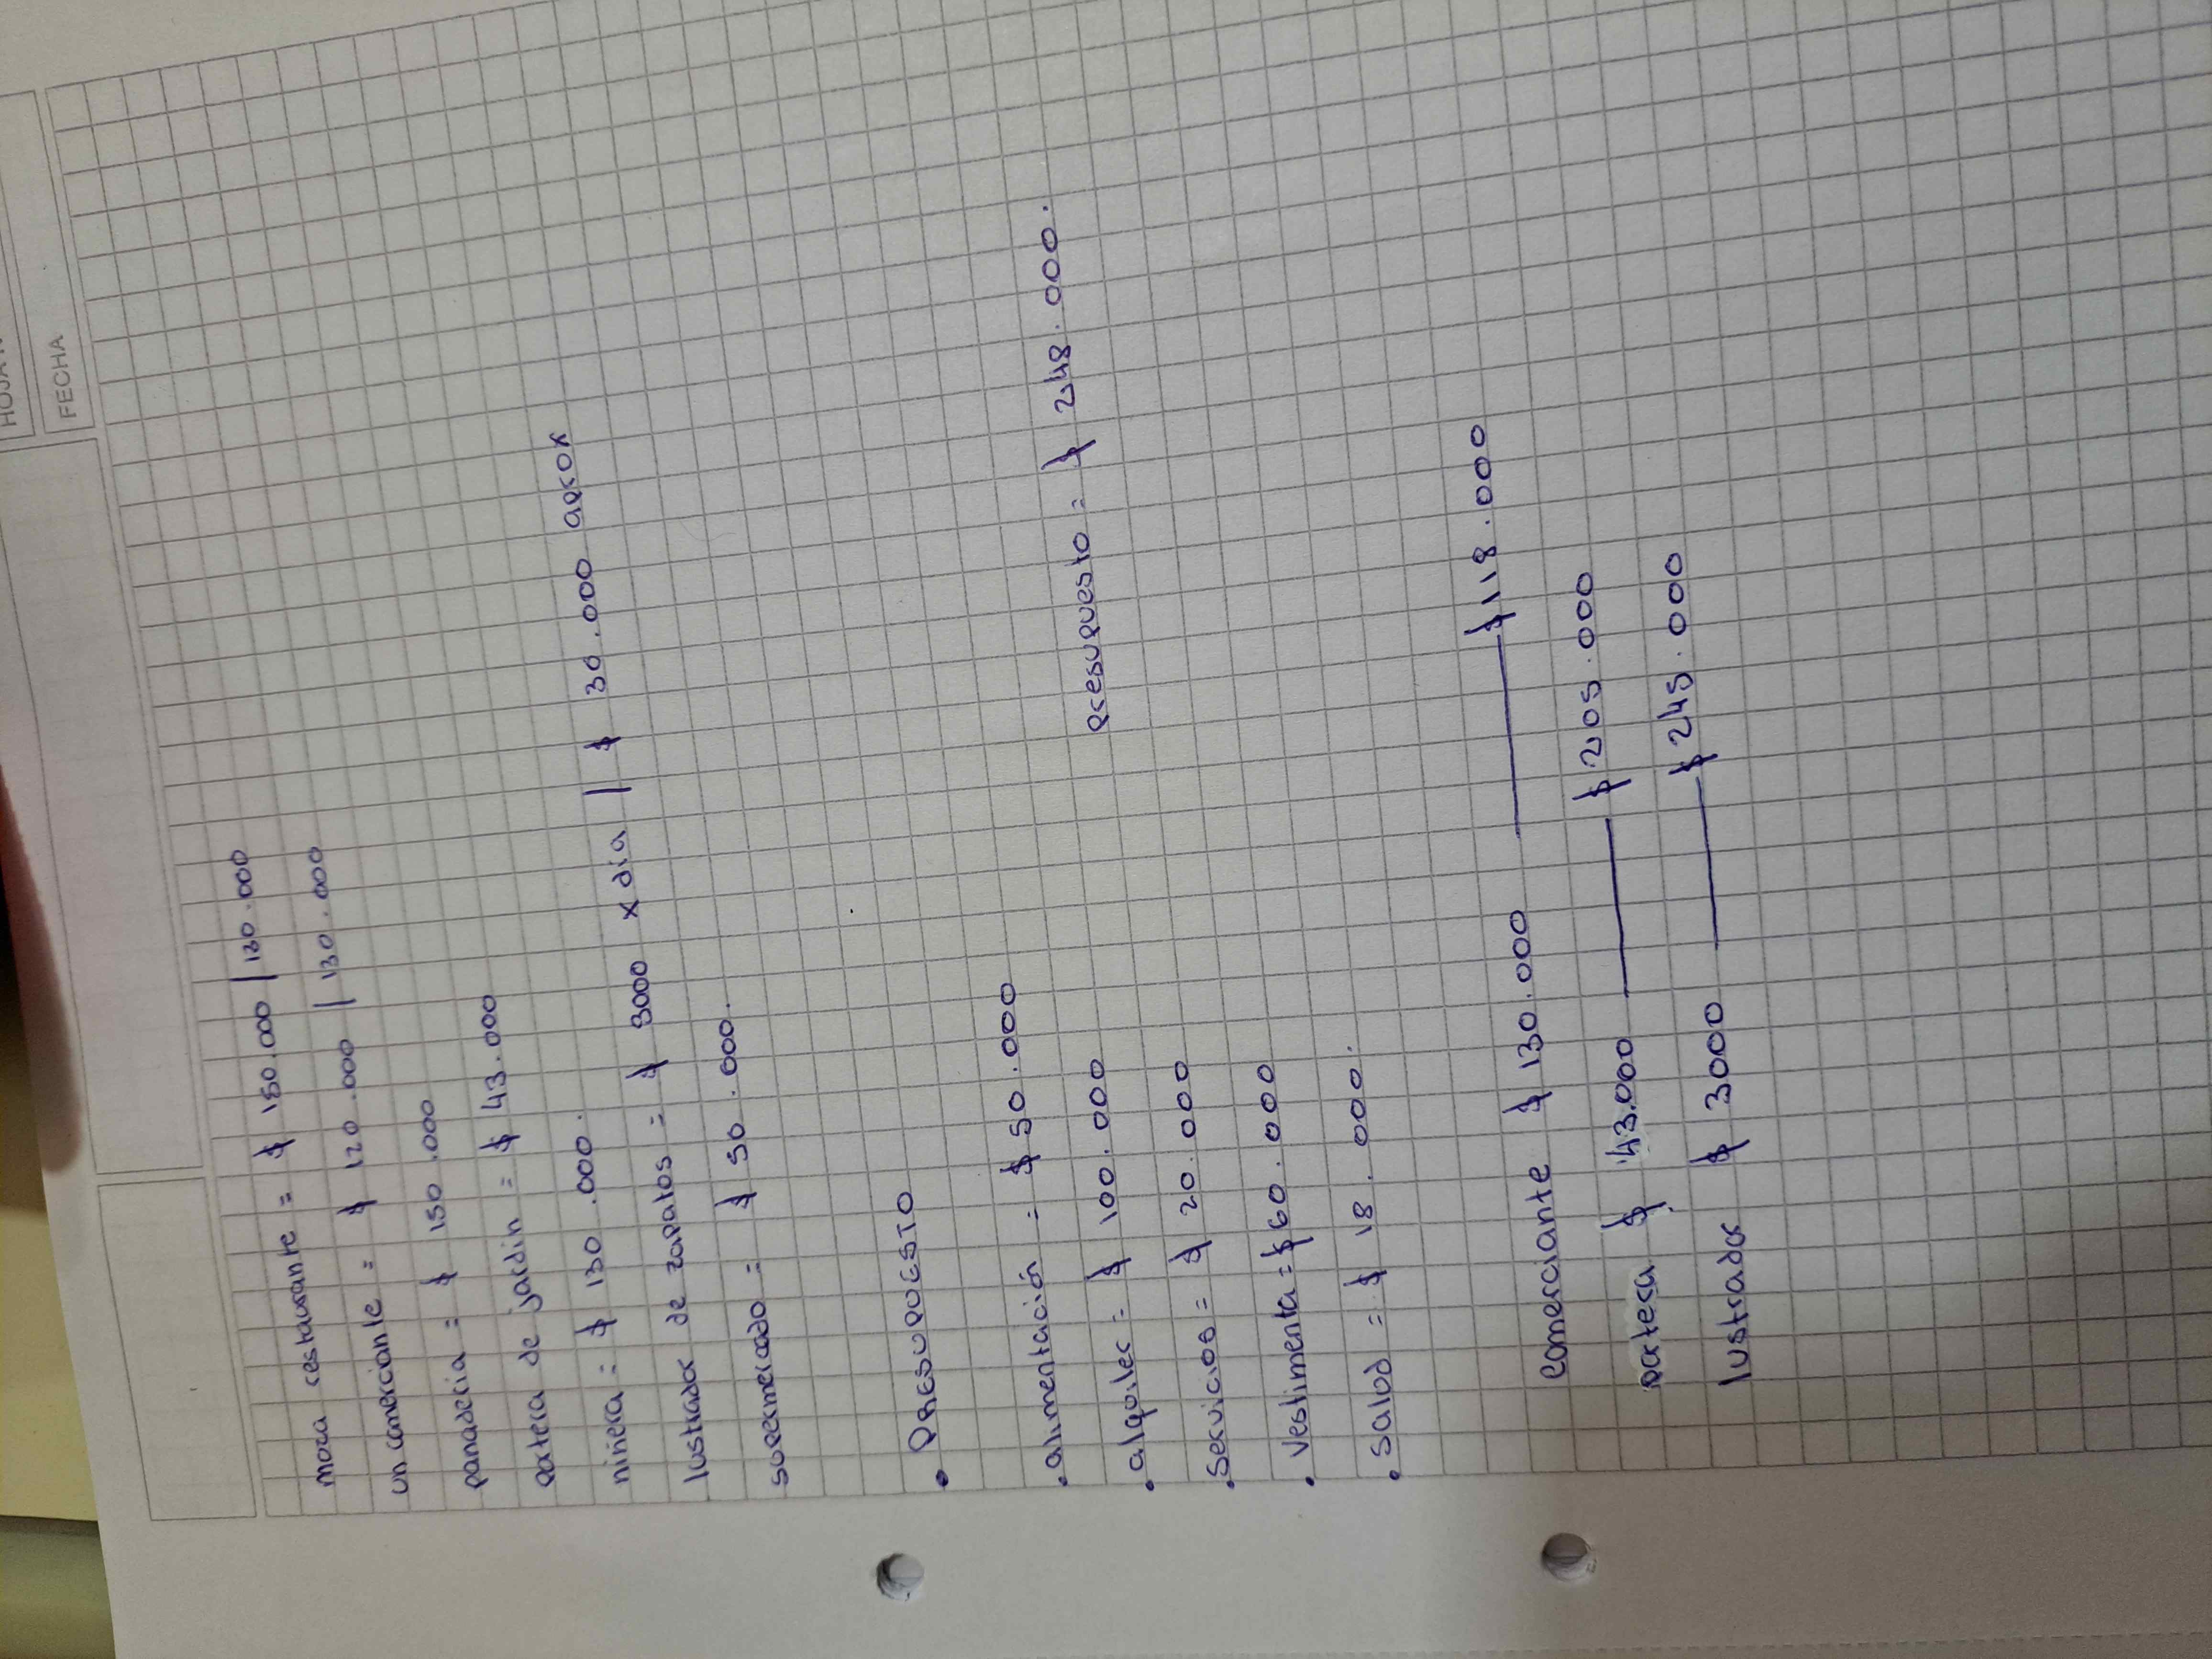 HOJA N
FECHA
moza restaurante = $ 150.000 | 130.000
un comerciante = $ 120.000 | 130.000
panaderia = $ 150.000
partera de jardin = $ 43.000
niñera = $ 130.000.
lustrador de zapatos = $ 3000 x dia | $ 30.000 aprox
supermercado = $ 50.000.
• PRESUPUESTO
• alimentación = $ 50.000
• alquiler = $ 100.000 presupuesto = $ 248.000.
• servicios = $ 20.000
• vestimenta = $ 60.000
• salud = $ 18.000.
comerciante $ 130.000 — $ 118.000
partera $ 43.000 — $ 205.000
lustrador $ 3000 — $ 245.000